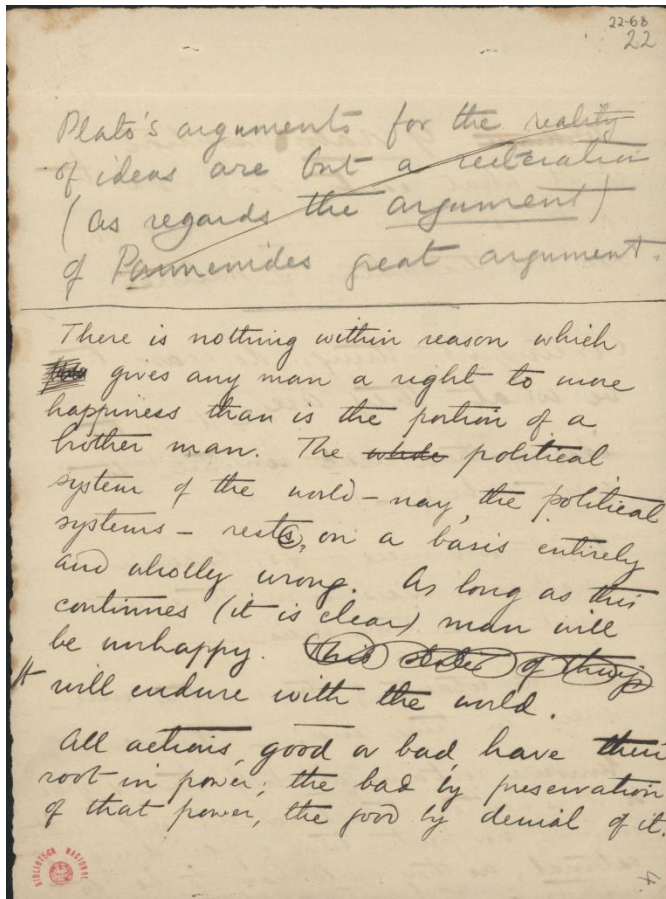 22-68
22
Plato's arguments for the reality
of ideas are but a reiteration
(as regards the argument)
of Parmenides great argument.
There is nothing within reason which
gives any man a right to more
happiness than is the portion of a
brother man. The whole political
system of the world – nay, the political
systems – rests, on a basis entirely
and wholly wrong. As long as this
continues (it is clear) man will
be unhappy. This state of things
It will endure with the world.
All actions, good or bad, have their
root in power; the bad by preservation
of that power, the good by denial of it.
BIBLIOTECA NACIONAL
4.